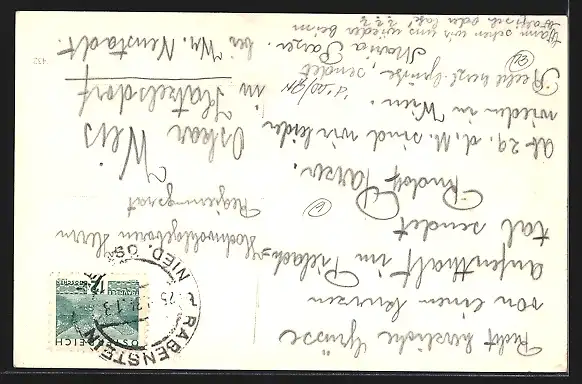 Recht herzliche Grüsse
von einem kurzen
Aufenthalt im Pielach-
tal sendet
Rudolf Panzer.
Ab 29. d. M. sind wir leider
wieder in Wien.
Recht herzl. Grüsse, sendet
Maria Panzer.
Wann sehen wir uns wieder beim
oder
Hochwohlgeboren Herrn
Regierungsrat
Oskar Weis
in Katzelsdorf
bei Wr. Neustadt.
432
RABENSTEIN
NIED. ÖST.
12
ÖSTERREICH